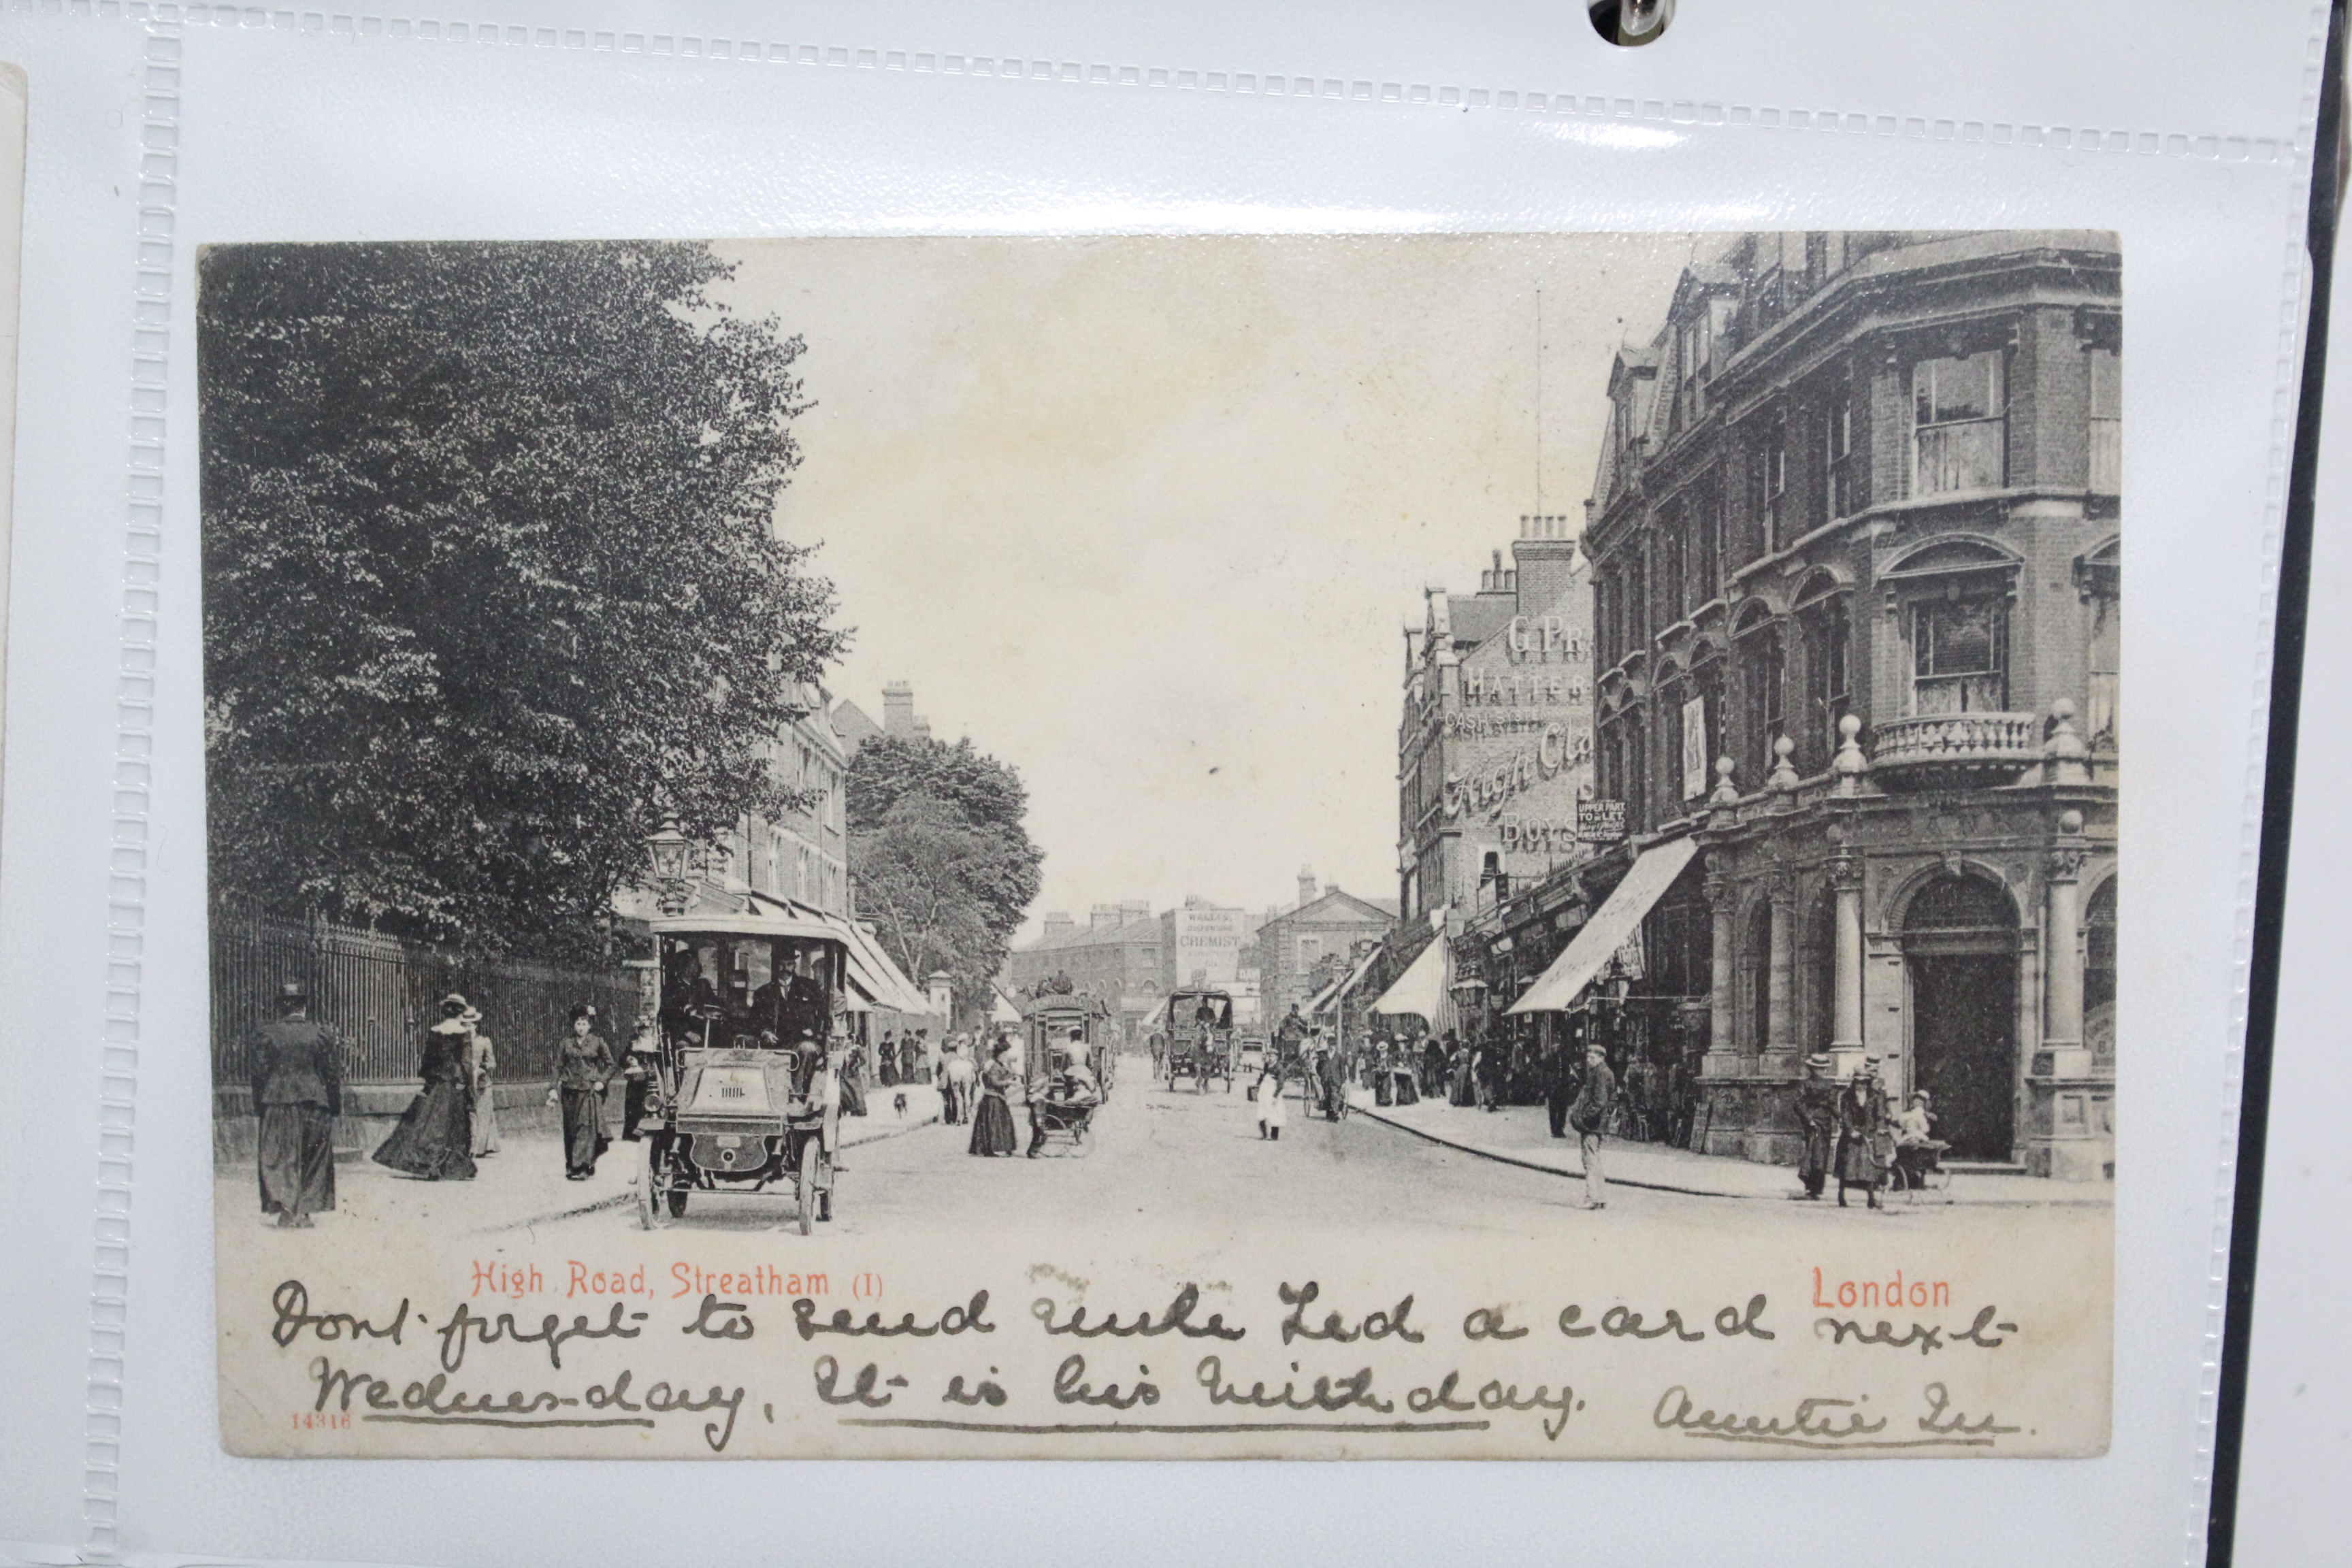 G. PR
HATTER
CASH SYSTEM
CASH SYSTEM
High Cla
BOYS
UPPER PART
TO BE LET
WALLIS.
DISPENSING
CHEMIST
BANK
High Road, Streatham (I)
London
Dont forget to send uncle Ted a card next
Wednesday, It is his birthday. Auntie
14316